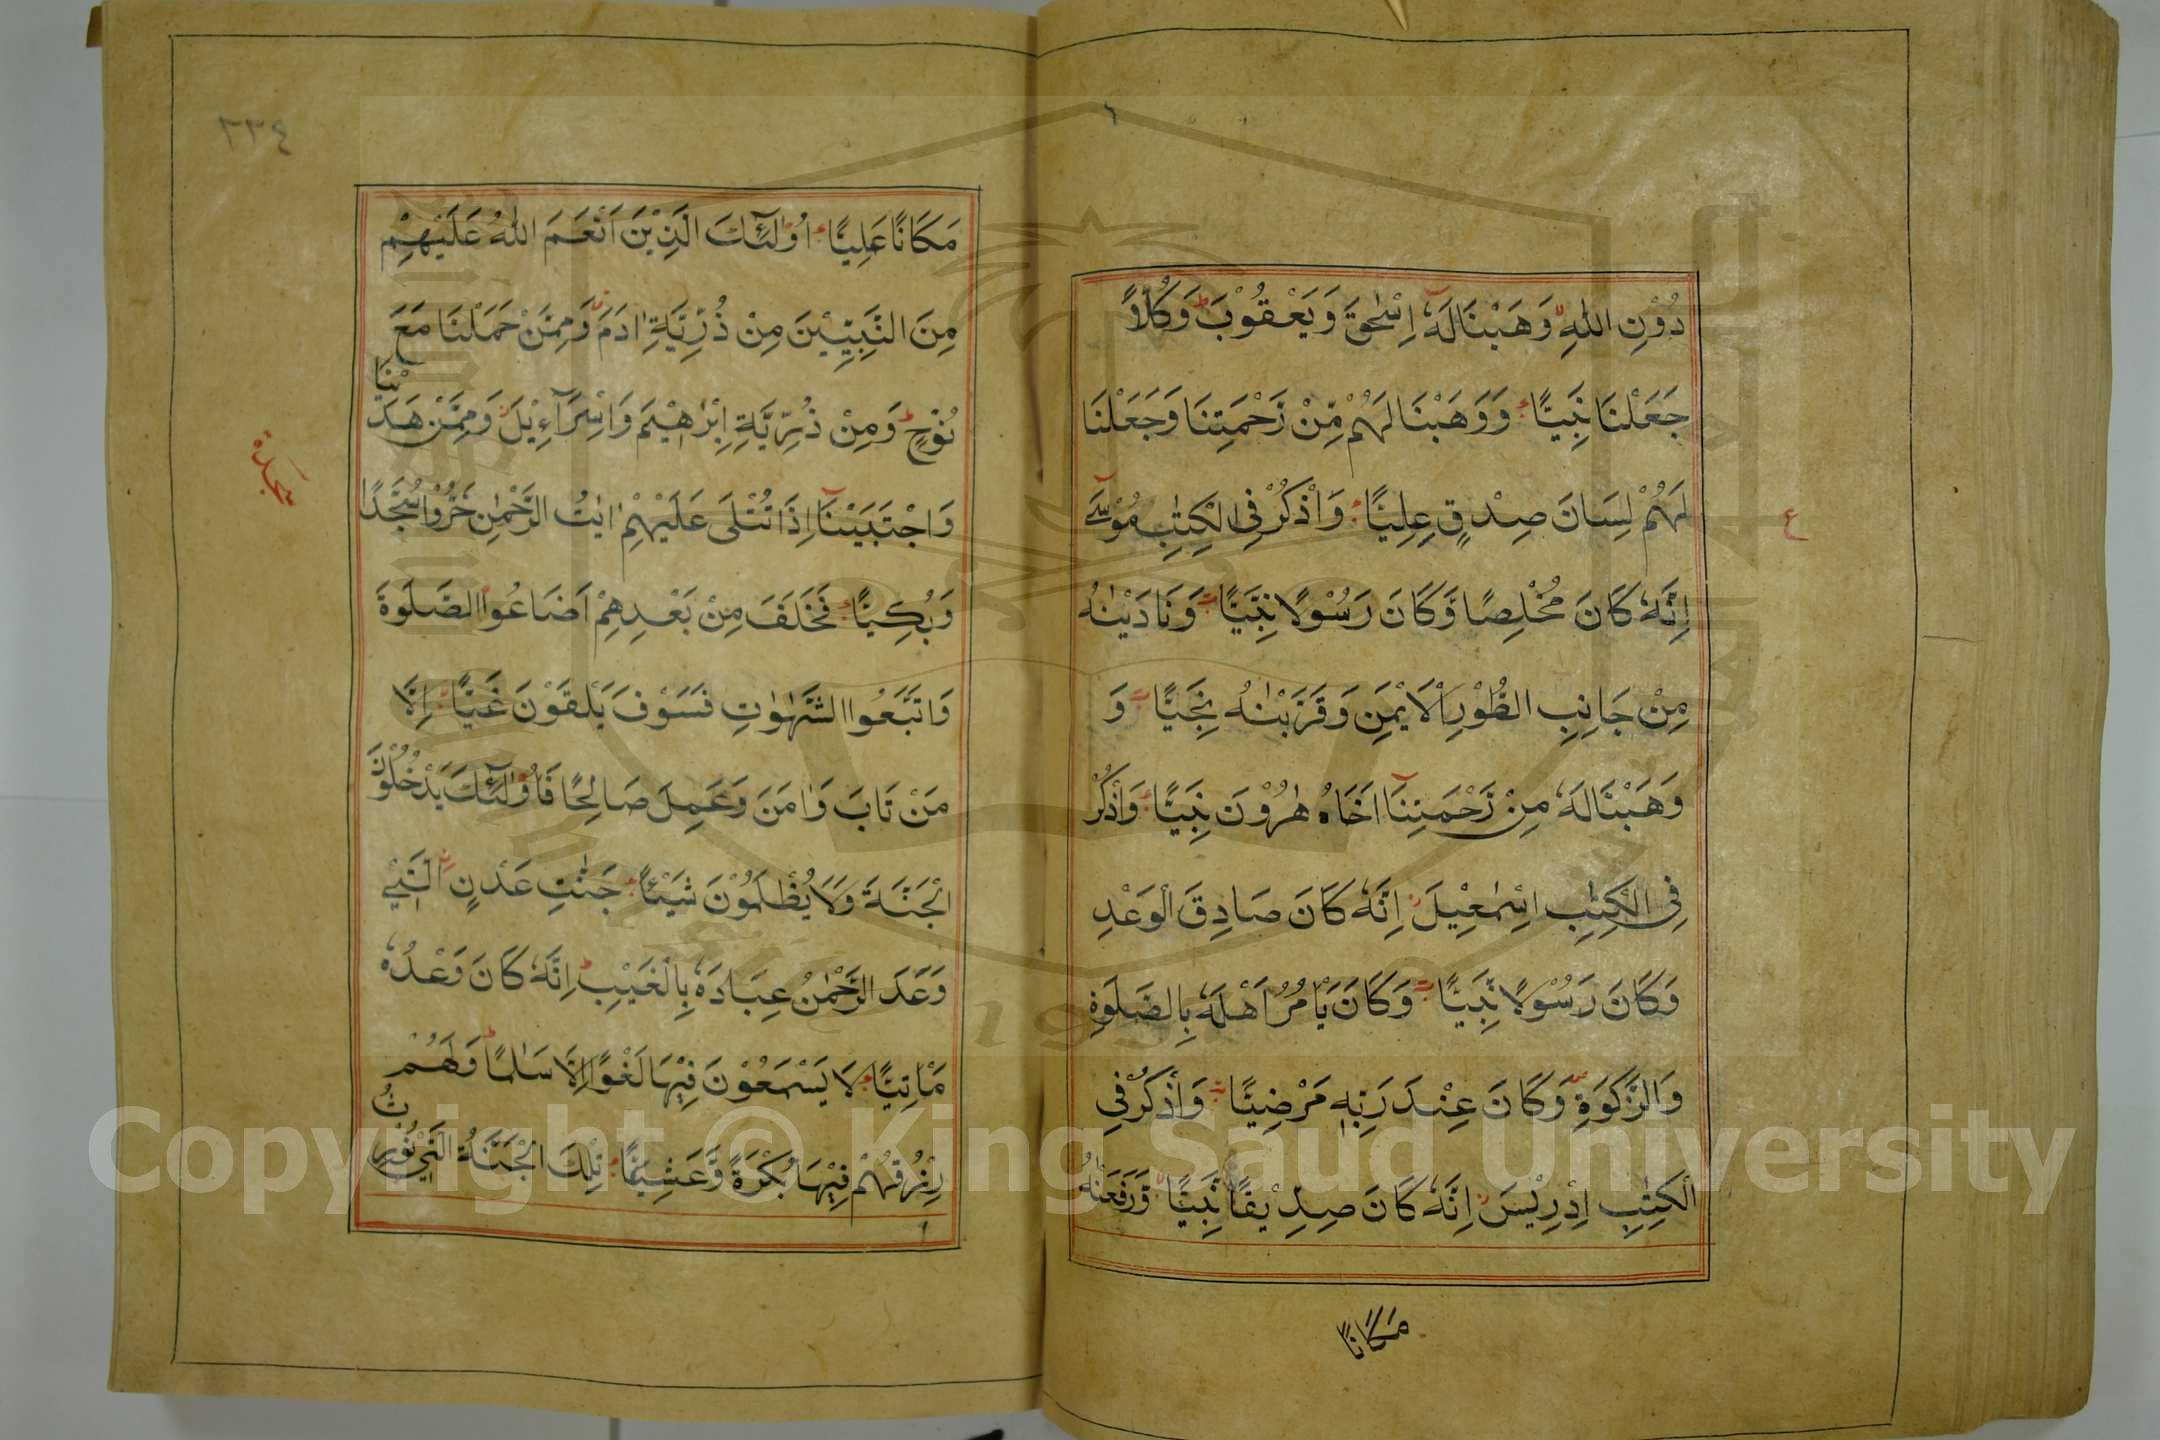 دُوْنِ اللّٰهِ وَهَبْنَا لَهٗٓ اِسْحٰقَ وَيَعْقُوْبَ ط وَكُلًّا
جَعَلْنَا نَبِيًّا وَوَهَبْنَا لَهُمْ مِّنْ رَّحْمَتِنَا وَجَعَلْنَا
لَهُمْ لِسَانَ صِدْقٍ عَلِيًّا وَاذْكُرْ فِى الْكِتٰبِ مُوْسٰٓى
اِنَّهٗ كَانَ مُخْلِصًا وَّكَانَ رَسُوْلًا نَّبِيًّا وَنَادَيْنٰهُ
مِنْ جَانِبِ الطُّوْرِ الْاَيْمَنِ وَقَرَّبْنٰهُ نَجِيًّا وَ
وَهَبْنَا لَهٗ مِنْ رَّحْمَتِنَآ اَخَاهُ هٰرُوْنَ نَبِيًّا وَاذْكُرْ
فِى الْكِتٰبِ اِسْمٰعِيْلَ اِنَّهٗ كَانَ صَادِقَ الْوَعْدِ
وَكَانَ رَسُوْلًا نَّبِيًّا وَكَانَ يَاْمُرُ اَهْلَهٗ بِالصَّلٰوةِ
وَالزَّكٰوةِ وَكَانَ عِنْدَ رَبِّهٖ مَرْضِيًّا وَاذْكُرْ فِى
الْكِتٰبِ اِدْرِيْسَ اِنَّهٗ كَانَ صِدِّيْقًا نَّبِيًّا وَّرَفَعْنٰهُ
مَكَانًا
ع
٢٣٤
مَكَانًا عَلِيًّا اُولٰٓئِكَ الَّذِيْنَ اَنْعَمَ اللّٰهُ عَلَيْهِمْ
مِنَ النَّبِيّٖنَ مِنْ ذُرِّيَّةِ اٰدَمَ وَمِمَّنْ حَمَلْنَا مَعَ
نُوْحٍ وَّمِنْ ذُرِّيَّةِ اِبْرٰهِيْمَ وَاِسْرَآءِيْلَ وَمِمَّنْ هَدَيْنَا
وَاجْتَبَيْنَآ اِذَا تُتْلٰى عَلَيْهِمْ اٰيٰتُ الرَّحْمٰنِ خَرُّوْا سُجَّدًا
سجدة
وَّبُكِيًّا فَخَلَفَ مِنْ بَعْدِهِمْ اَضَاعُوا الصَّلٰوةَ
وَاتَّبَعُوا الشَّهَوٰتِ فَسَوْفَ يَلْقَوْنَ غَيًّا اِلَّا
مَنْ تَابَ وَاٰمَنَ وَعَمِلَ صَالِحًا فَاُولٰٓئِكَ يَدْخُلُوْنَ
الْجَنَّةَ وَلَا يُظْلَمُوْنَ شَيْئًا جَنّٰتِ عَدْنٍ الَّتِيْ
وَعَدَ الرَّحْمٰنُ عِبَادَهٗ بِالْغَيْبِ ط اِنَّهٗ كَانَ وَعْدُهٗ
مَاْتِيًّا لَا يَسْمَعُوْنَ فِيْهَا لَغْوًا اِلَّا سَلٰمًا ط وَلَهُمْ
رِزْقُهُمْ فِيْهَا بُكْرَةً وَّعَشِيًّا تِلْكَ الْجَنَّةُ الَّتِيْ نُوْرِثُ
Copyright © King Saud University